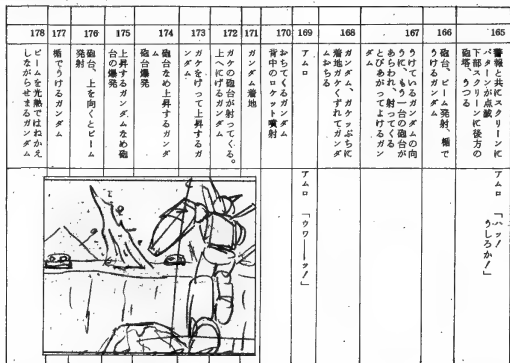 165
警報と共にスクリーンに
パターンが点滅
下部スクリーンに後方の
砲塔、うつる
アムロ 「ハッ!
うしろか!」
166
砲台、ビーム発射、楯で
うけるガンダム
167
うけているガンダムの向
うに、もう一台の砲台が
あらわれ、射ってくる
とびあがってよけるガン
ダム
168
ガンダム、ガケップちに
着地ガケくずれてガンダ
ムおちる
169
アムロ
アムロ 「ウワーッ!」
170
おちてくるガンダム
背中のロケット噴射
171
ガンダム着地
172
ガケの砲台が射ってくる。
上へにげるガンダム
173
ガケをけって上昇するガ
ンダム
174
砲台なめ上昇するガンダ
ム
砲台爆発
175
上昇するガンダムなめ砲
台の爆発
176
砲台、上を向くとビーム
発射
177
楯でうけるガンダム
178
ビームを光熱ではねかえ
しながらせまるガンダム